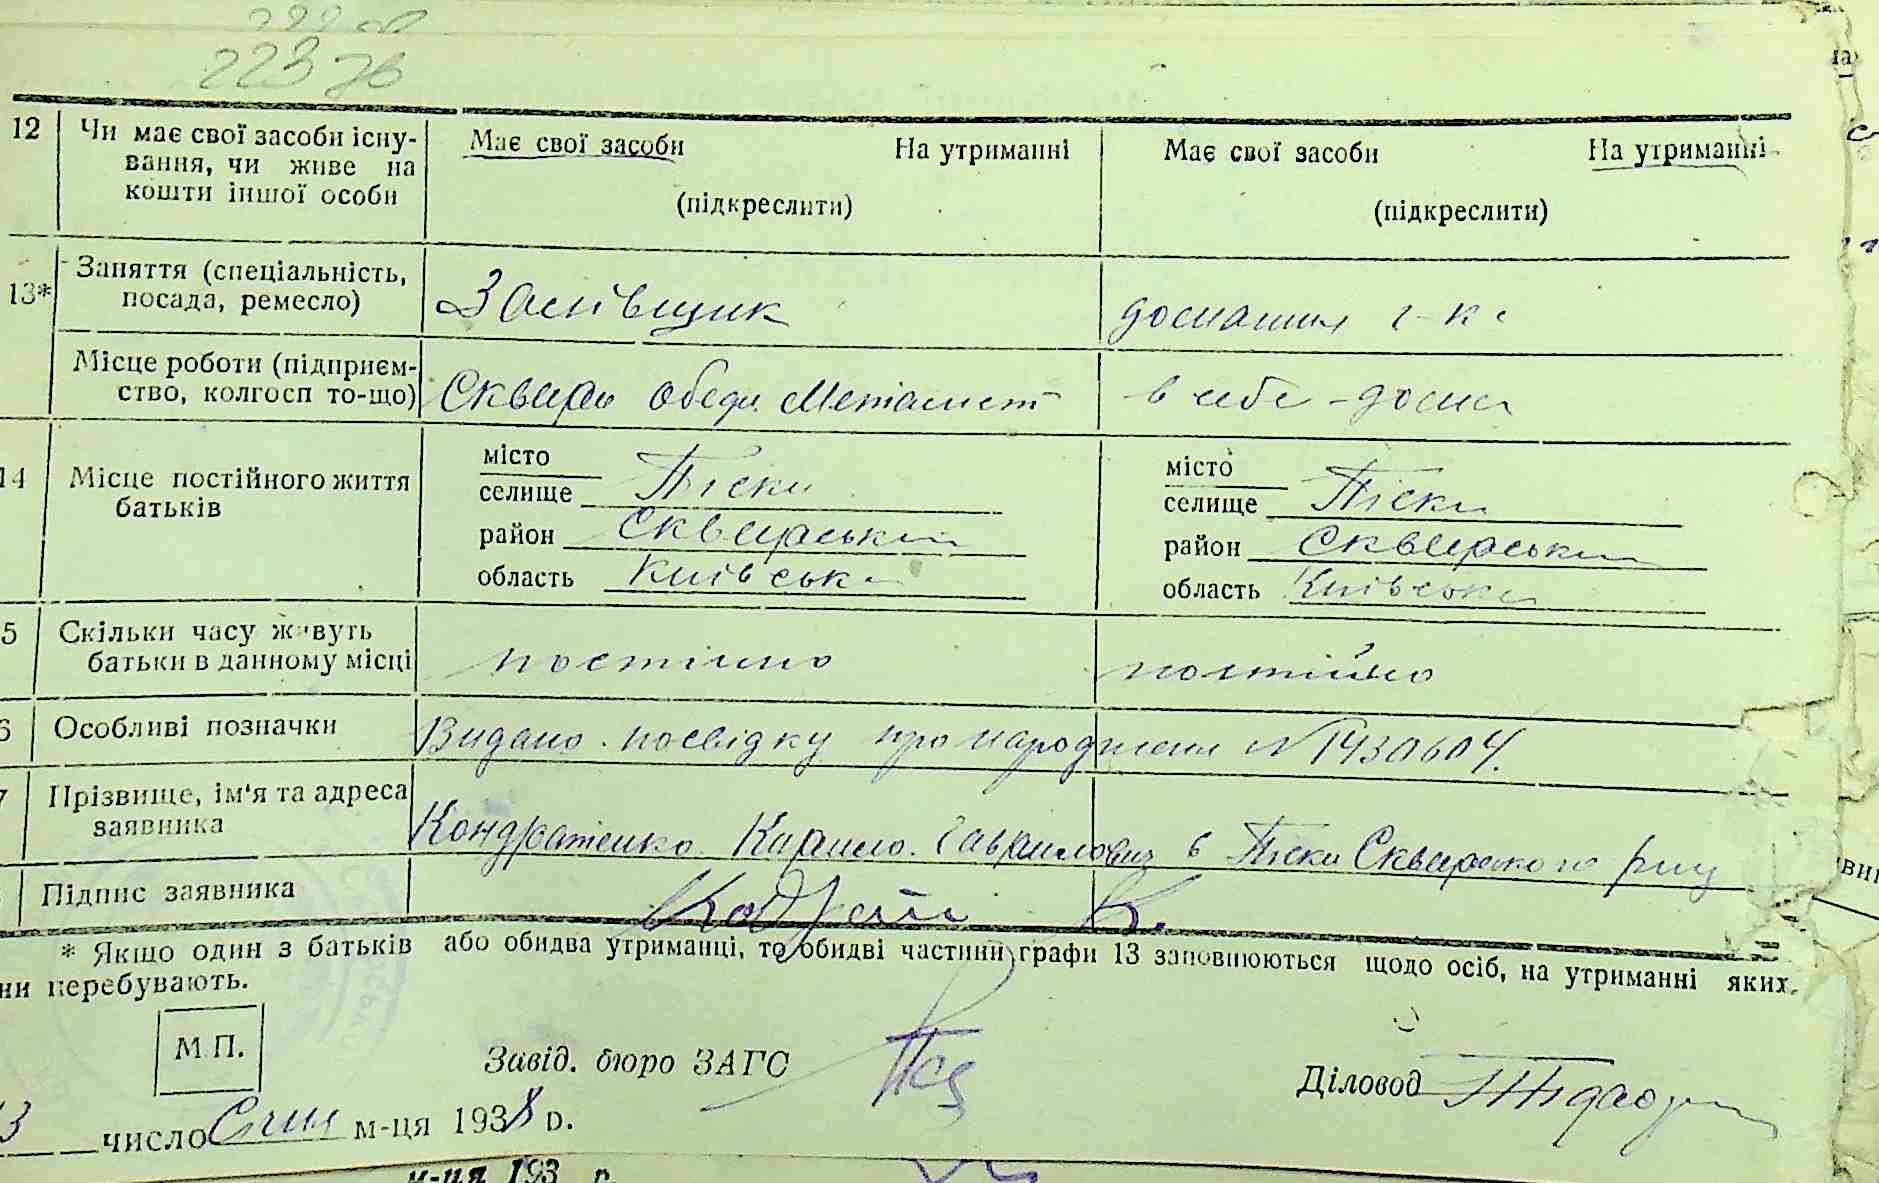 223 зв
12 Чи має свої засоби існу-
вання, чи живе на
кошти іншої особи
Має свої засоби На утриманні
(підкреслити)
Має свої засоби На утриманні
(підкреслити)
13* Заняття (спеціальність,
посада, ремесло)
домашня
Місце роботи (підприєм-
ство, колгосп то-що)
Сквира Металіст
в себе дома
14 Місце постійного життя
батьків
місто
селище Піски
район Сквирськ
область Київськ
місто
селище Піски
район Сквирськ
область Київськ
5 Скільки часу живуть
батьки в данному місці
постійно
постійно
6 Особливі позначки
Видано посвідку про народження N 1430604.
7 Прізвище, ім'я та адреса
заявника
Кондратенко Кирило Гаврилович в Піски Сквирського р-ну
Підпис заявника
К.
* Якщо один з батьків або обидва утриманці, то обидві частини графи 13 заповнюються щодо осіб, на утриманні яких
ни перебувають.
М.П.
Завід. бюро ЗАГС
Діловод
3 число Січня м-ця 1938 р.
м-ця 193 р.